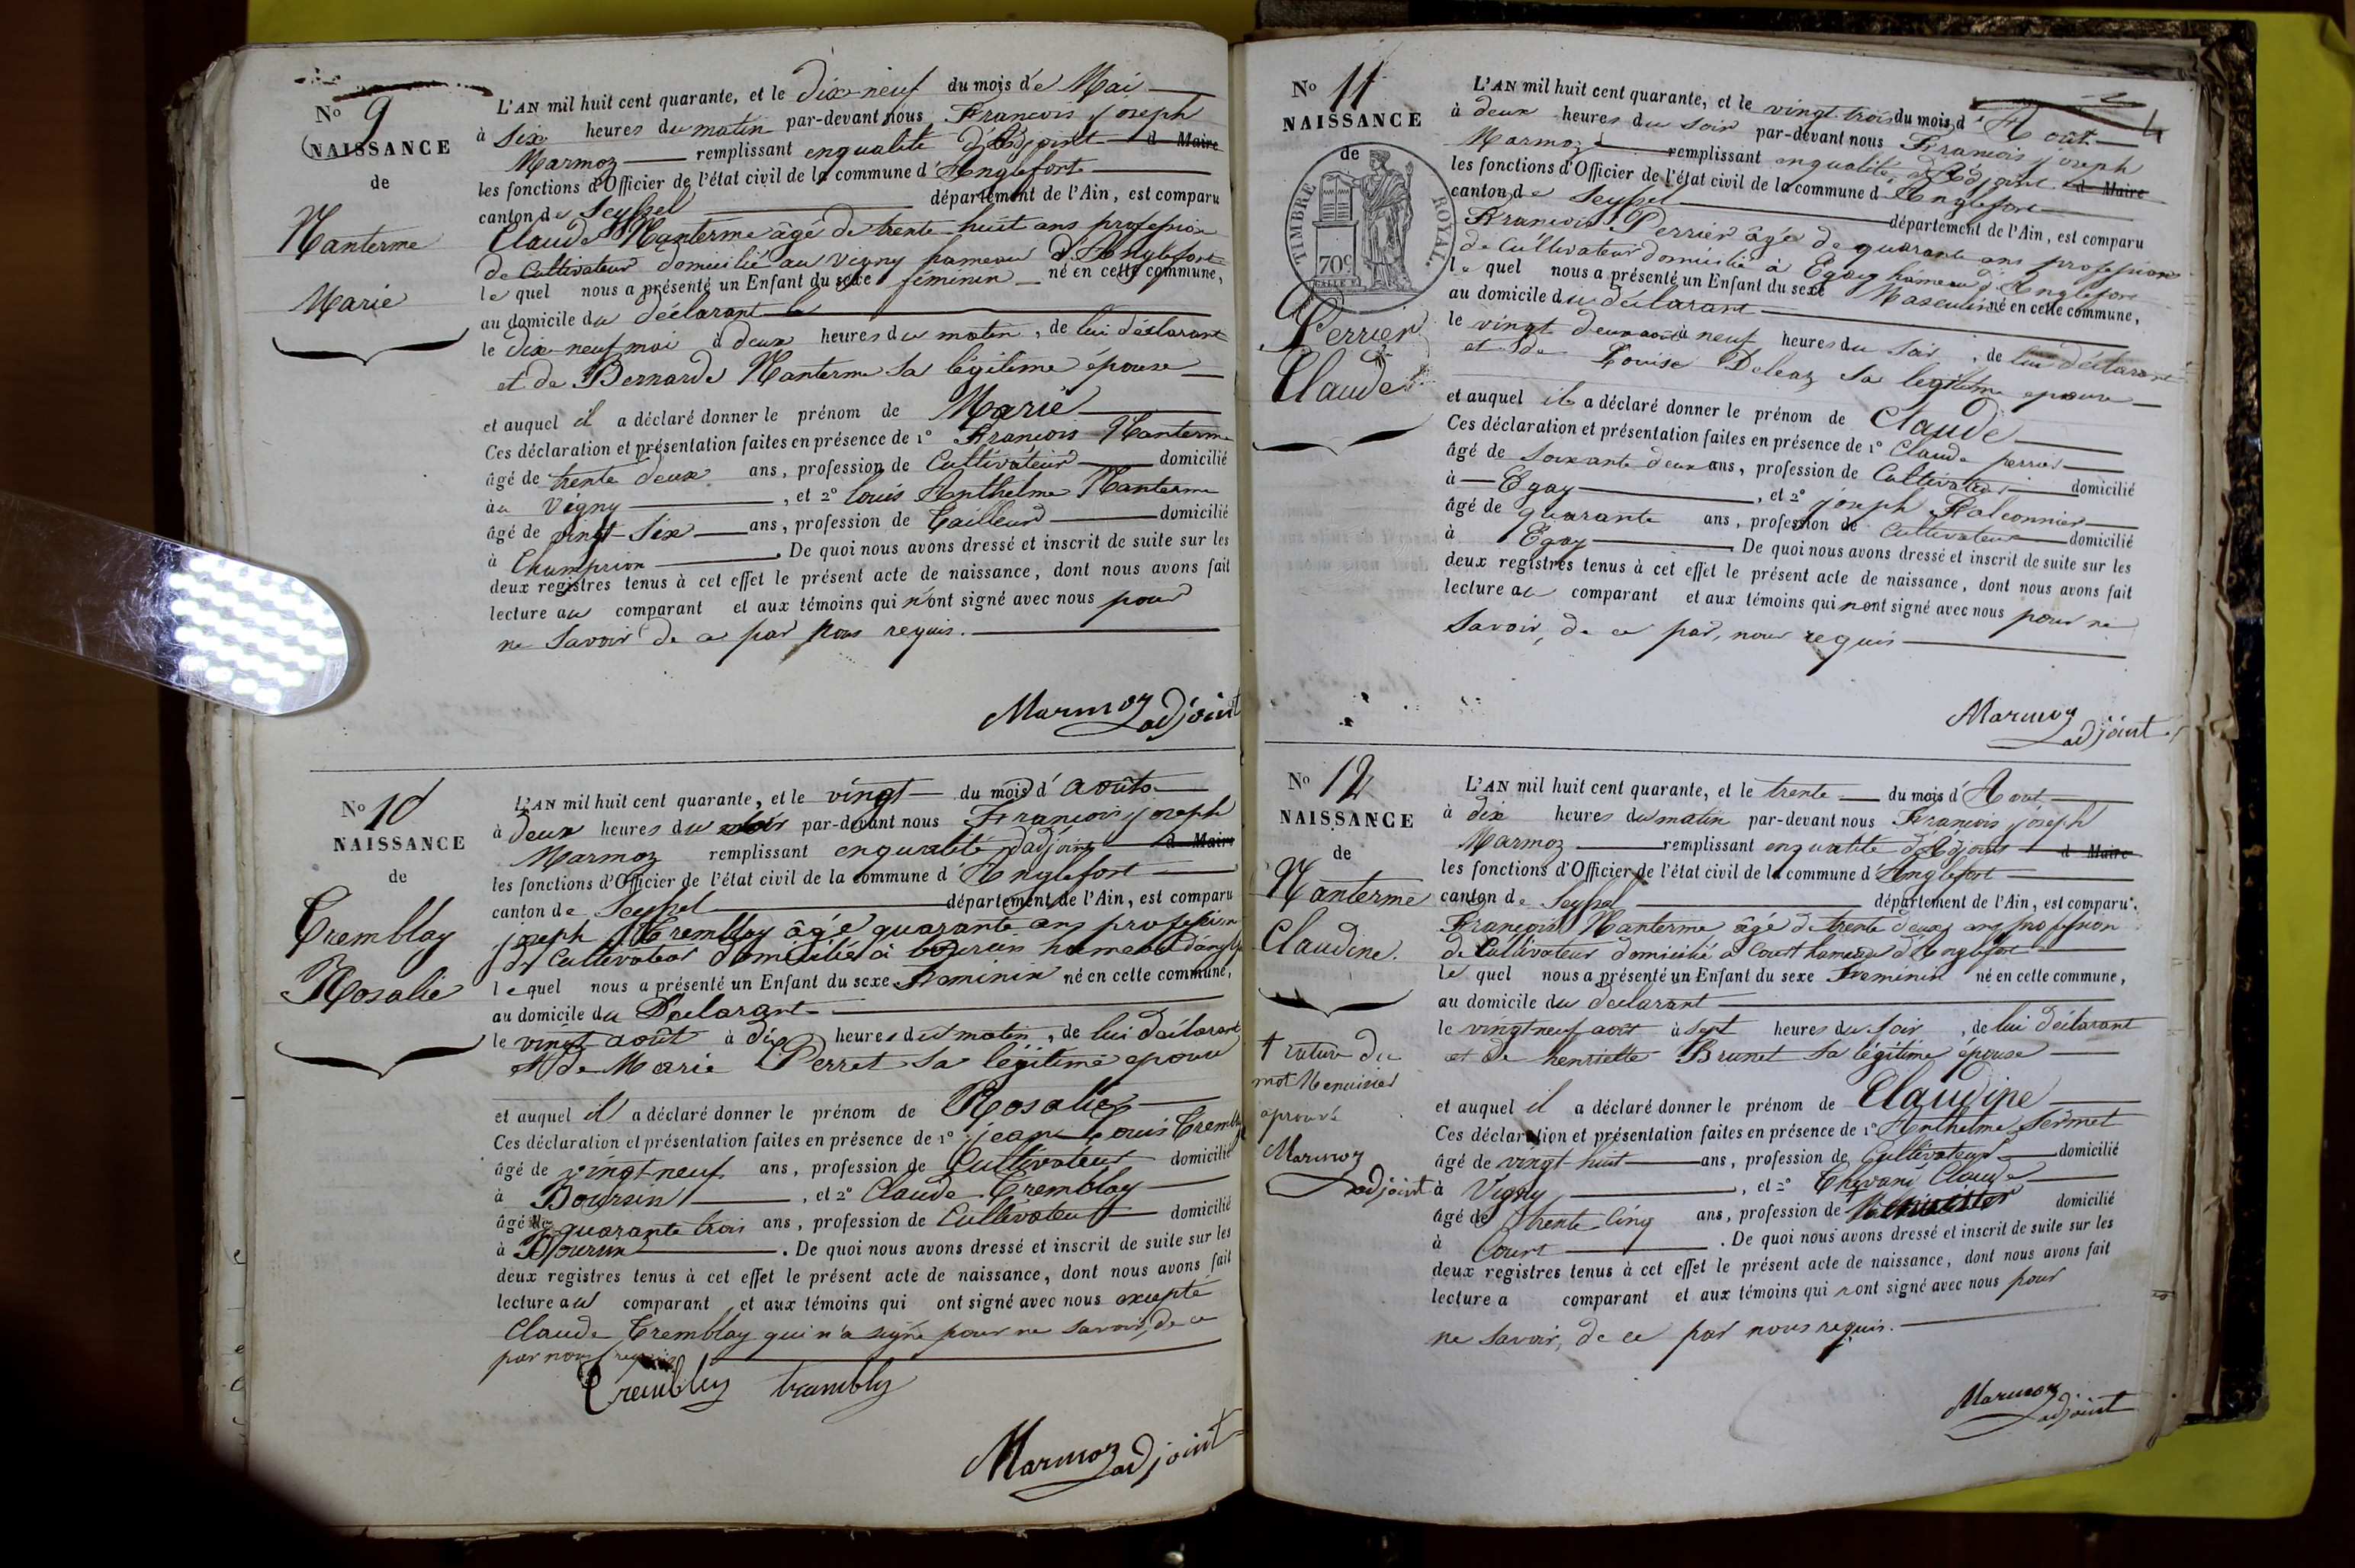 No 9
NAISSANCE
de
Nanterme
Marie
L'AN mil huit cent quarante, et le dix-neuf du mois de Mai
à six heures du matin par-devant nous Francois joseph
Marmoz remplissant en qualité d'Adjoint d Maire
les fonctions d'Officier de l'état civil de la commune d'Anglefort
canton de Seyssel département de l'Ain, est comparu
Claude Nanterme âgé de trente-huit ans profession
de Cultivateur domicilié au Vigny hameau d'Anglefort
le quel nous a présenté un Enfant du sexe féminin né en cette commune,
au domicile du déclarant
le dix-neuf mai à deux heures du matin, de lui déclarant
et de Bernarde Nanterme sa légitime épouse
et auquel il a déclaré donner le prénom de Marie
Ces déclaration et présentation faites en présence de 1° Francois Nanterme
âgé de trente deux ans, profession de Cultivateur domicilié
au Vigny, et 2° Louis Anthelme Nanterme
âgé de vingt-six ans, profession de Tailleur domicilié
à Champrion. De quoi nous avons dressé et inscrit de suite sur les
deux registres tenus à cet effet le présent acte de naissance, dont nous avons fait
lecture au comparant et aux témoins qui n'ont signé avec nous pour
ne Savoir de ce par nous requis.
Marmoz adjoint
No 10
NAISSANCE
de
Tremblay
Rosalie
L'AN mil huit cent quarante, et le vingt du mois d'août
à deux heures du soir par-devant nous Francois joseph
Marmoz remplissant en qualité d'adjoint d Maire
les fonctions d'Officier de l'état civil de la commune d Anglefort
canton de Seyssel département de l'Ain, est comparu
joseph Tremblay âgé quarante ans profession
de Cultivateur domicilié à boursin hameau
le quel nous a présenté un Enfant du sexe Feminin né en cette commune,
au domicile du Declarant
le vingt août à dix heures du matin, de lui déclarant
et de Marie Perret sa légitime epouse
et auquel il a déclaré donner le prénom de Rosalie
Ces déclaration et présentation faites en présence de 1° jean Louis Trembly
âgé de vingt neuf ans, profession de Cultivateur domicilié
à Boursin, et 2° Claude Tremblay
âgé de quarante trois ans, profession de Cultivateur domicilié
à Boursin. De quoi nous avons dressé et inscrit de suite sur les
deux registres tenus à cet effet le présent acte de naissance, dont nous avons fait
lecture au comparant et aux témoins qui ont signé avec nous excepté
Claude Tremblay qui n'a signé pour ne savoir, de ce
par nous requis
Trembley trembly
Marmoz adjoint
No 11
NAISSANCE
de
TIMBRE ROYAL.
70c
Perrier
Claude
4
L'AN mil huit cent quarante, et le vingt-trois du mois d'Août
à deux heures du soir par-devant nous Francois joseph
Marmoz remplissant en qualité d'Adjoint d Maire
les fonctions d'Officier de l'état civil de la commune d Anglefort
canton de Seyssel département de l'Ain, est comparu
Francois Perrier âgé de quarante ans profession
de Cultivateur domicilié à Egay hameau d'Anglefort
le quel nous a présenté un Enfant du sexe Masculin né en cette commune,
au domicile du déclarant
le vingt deux août à neuf heures du soir, de lui déclarant
et de Louise Deleaz sa legitime epouse
et auquel il a déclaré donner le prénom de Claude
Ces déclaration et présentation faites en présence de 1° Claude perrier
âgé de soixante deux ans, profession de Cultivateur domicilié
à Egay, et 2° joseph Falconnier
âgé de quarante ans, profession de Cultivateur domicilié
à Egay De quoi nous avons dressé et inscrit de suite sur les
deux registres tenus à cet effet le présent acte de naissance, dont nous avons fait
lecture au comparant et aux témoins qui n'ont signé avec nous pour ne
Savoir, de ce par, nous requis
Marmoz adjoint
No 12
NAISSANCE
de
Nanterme
Claudine.
L'AN mil huit cent quarante, et le trente du mois d'Aout
à dix heures du matin par-devant nous Francois joseph
Marmoz remplissant en qualité d'Adjoint d Maire
les fonctions d'Officier de l'état civil de la commune d'Anglefort
canton de Seyssel département de l'Ain, est comparu
François Nanterme âgé de trente deux ans profession
de Cultivateur domicilié a Court hameau d'Anglefort
le quel nous a présenté un Enfant du sexe Feminin né en cette commune,
au domicile du declarant
le vingt neuf août à sept heures du soir, de lui déclarant
et de henriette Brunet sa légitime épouse
et auquel il a déclaré donner le prénom de Claudine
Ces déclaration et présentation faites en présence de 1° Anthelme Sermet
âgé de vingt huit ans, profession de Cultivateur domicilié
à Vigny, et 2° Claude
âgé de trente Cinq ans, profession de Menuisier domicilié
à Court. De quoi nous avons dressé et inscrit de suite sur les
deux registres tenus à cet effet le présent acte de naissance, dont nous avons fait
lecture a comparant et aux témoins qui n'ont signé avec nous pour
ne savoir, de ce par nous requis.
Marmoz adjoint
rature du
mot Menuisier
aprouvé
Marmoz
adjoint